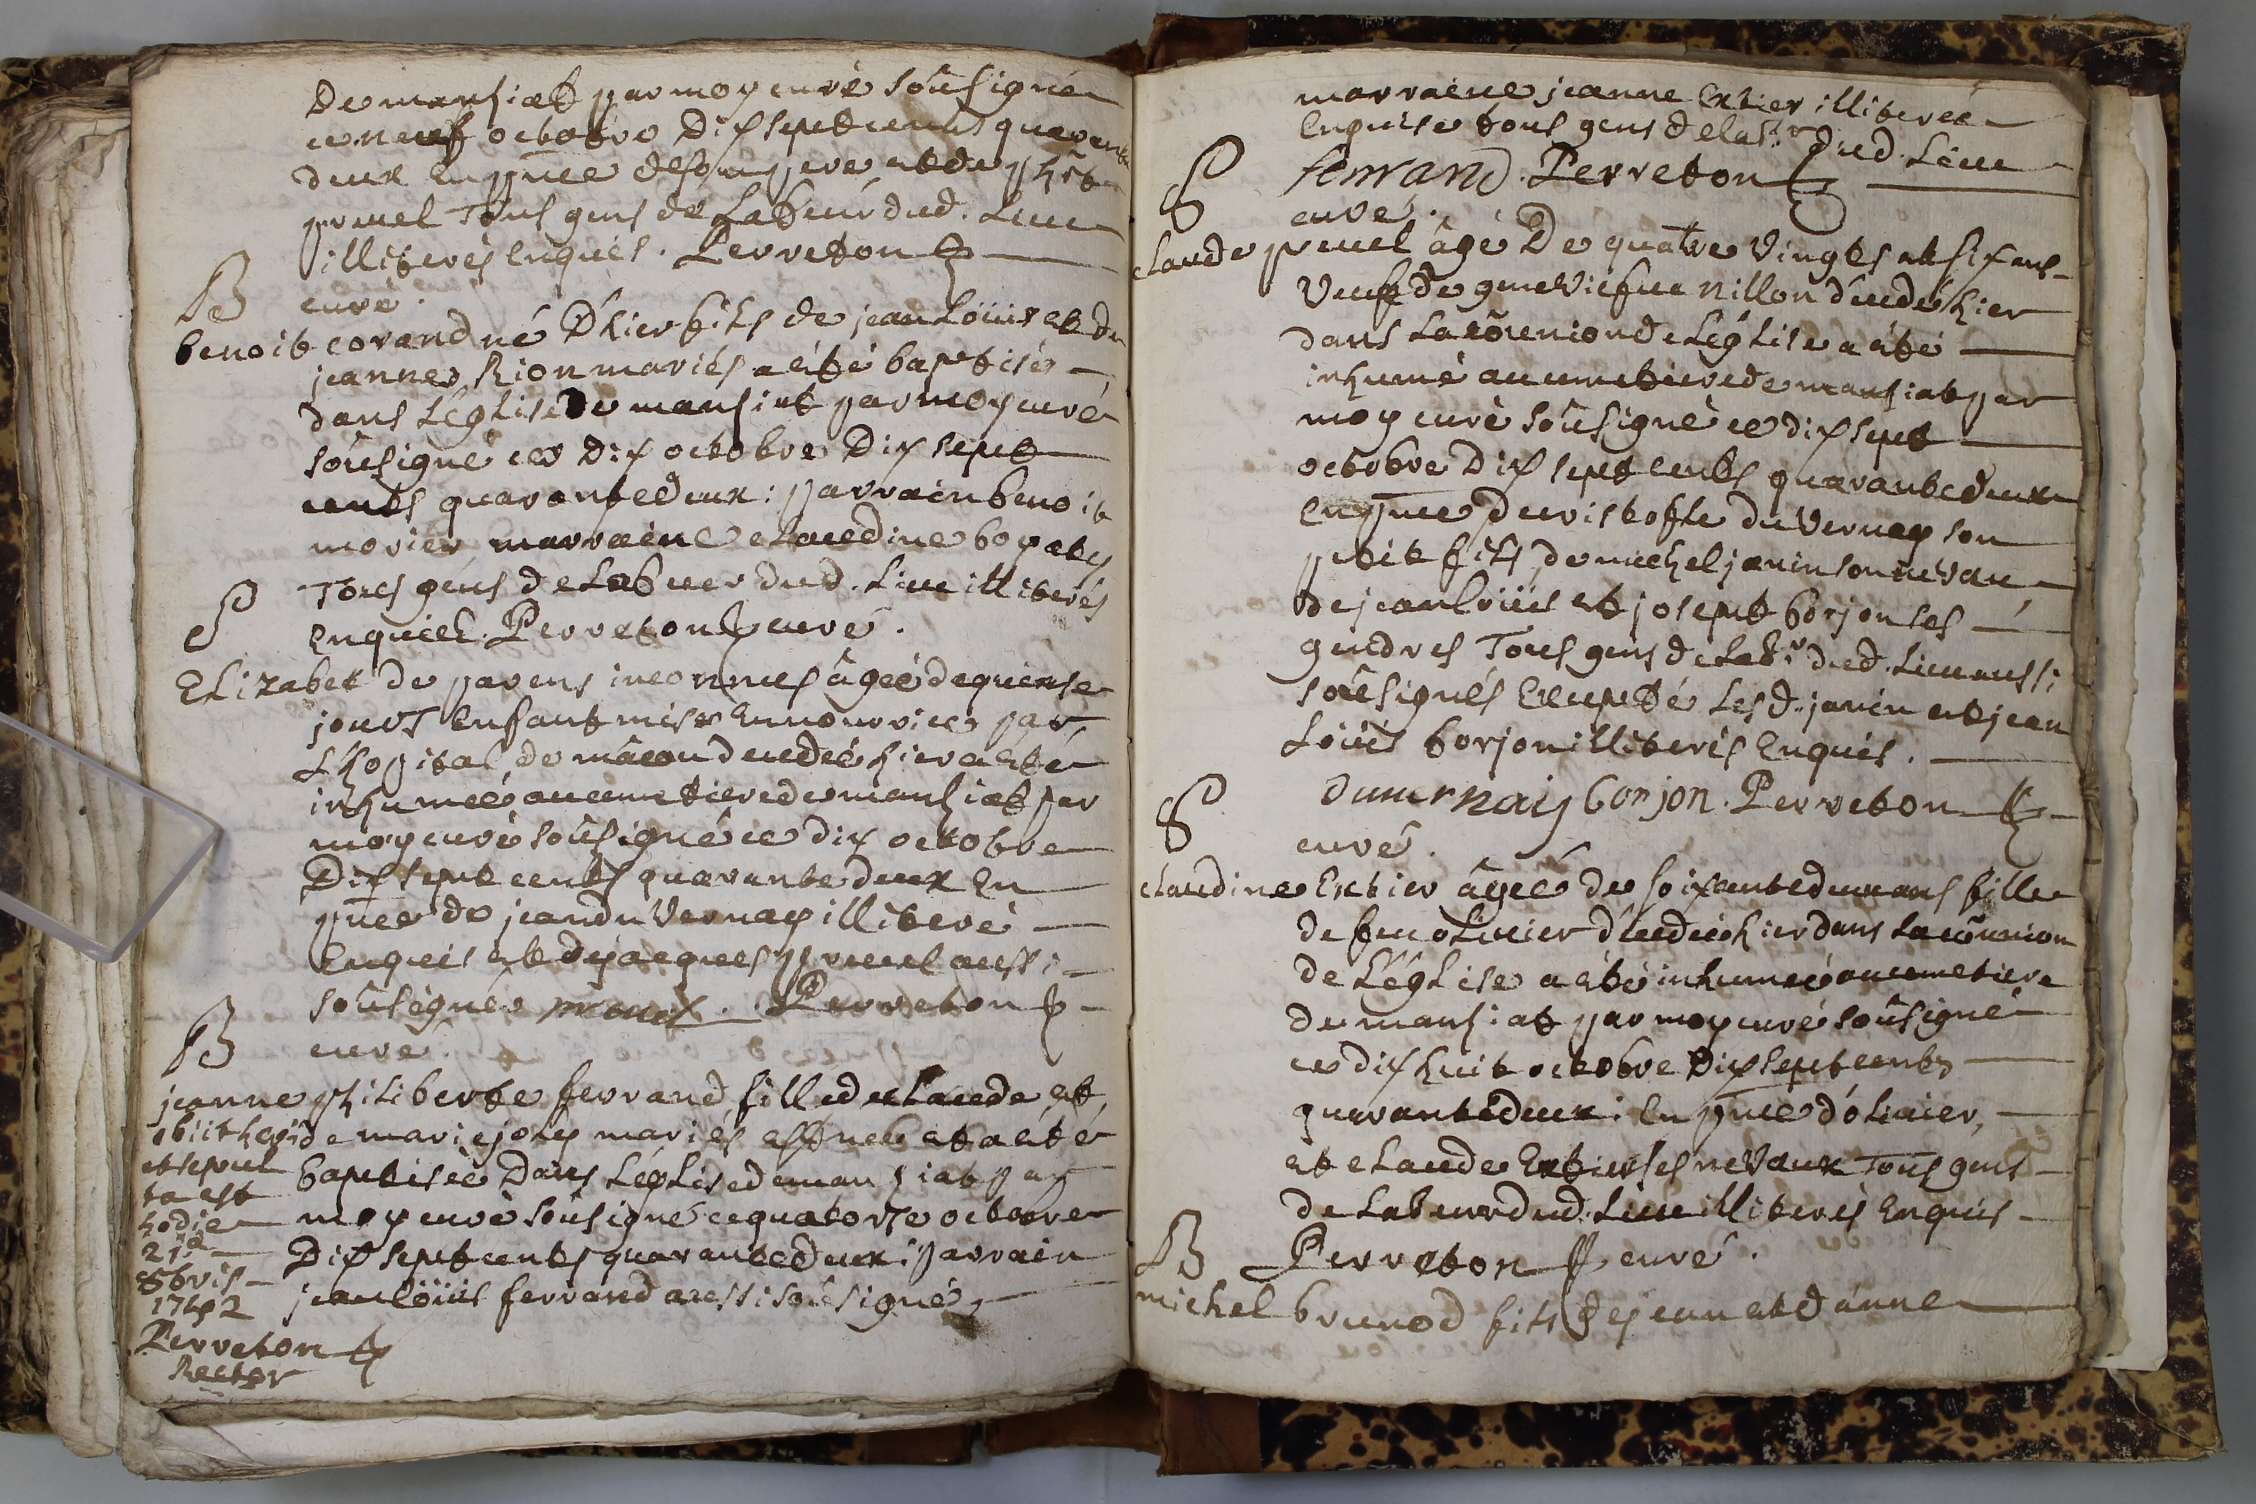 De mansiat par moy curé soûsigné
ce neuf octobre Dix sept cents quarante
deux En pñce de son pere et de phîbt
pruel Tous gens de Labeur dud. Lieu
illiterés Enquis. Perreton
B curé.
benoit corand né D'hier fils de jean Loüis et de
jeanne Rion mariés a été baptisé
dans L'église De mansiat par moy curé
soûsigné ce Dix octobre Dix sept
cents quarante deux : parrain benoit
morier marraine claudine boyat
Tous gens de Labeur dud. Lieu illiterés
S Enquis. Perreton curé.
Elizabet de parens inconnus âgée de quinse
jours Enfant mise En nourrice par
L'hopital de mâcon decedée hier a été
inhumée au cimetiere de mansiat par
moy curé soûsigné ce dix octobre
Dix sept cents quarante deux En
pñce de jean du Vernay illiteré
Enquis et de jacques pruel aussi
soûsigné pruel. Perreton
B curé.
jeanne philiberte ferrand fille de claude et
de marie joly mariés est née et a été
baptisée Dans L'église de mansiat par
moy curé soûsigné ce quatorze octobre
Dix sept cents quarante deux : parrain
jean loüis ferrand aussi soûsigné,
obiit
et sepul
ta est
hodie
21ª
8bris
1742
Perreton
Rector
marraine jeanne Extier illiterée
Enquise tous gens de lab.r dud. Lieu
S ferrand. Perreton
curé.
claude pruel âgé De quatre Vingts et six ans
Veuf de geneviefve Nillon décédé hier
dans La cõmunion de L'église a été
inhumé au cimetiere de mansiat par
moy curé soûsigné ce dix sept
octobre Dix sept cents quarante deux
En pñce de cristofle du Vernay son
petit fils, de michel janin son nevau
de jean loüis et joseph borjon ses
gendres Tous gens de Lab.r dud. Lieu aussi
soûsignés Excepté Lesd. janin et jean
Loüis borjon illiterés Enquis.
S duvernaiy borjon. Perreton
curé.
claudine Extier âgée de soixante deux ans fille
de feu olivier décédée hier dans La cõmunion
de L'église a été inhumée au cimetiere
de mansiat par moy curé soûsigné
ce dix huit octobre Dix sept cents
quarante deux : En pñce d'olivier,
et claude Extier ses nevaux Tous gens
de Labeur dud. Lieu illiterés Enquis
B Perreton curé.
michel brunod fils de jean et d'anne